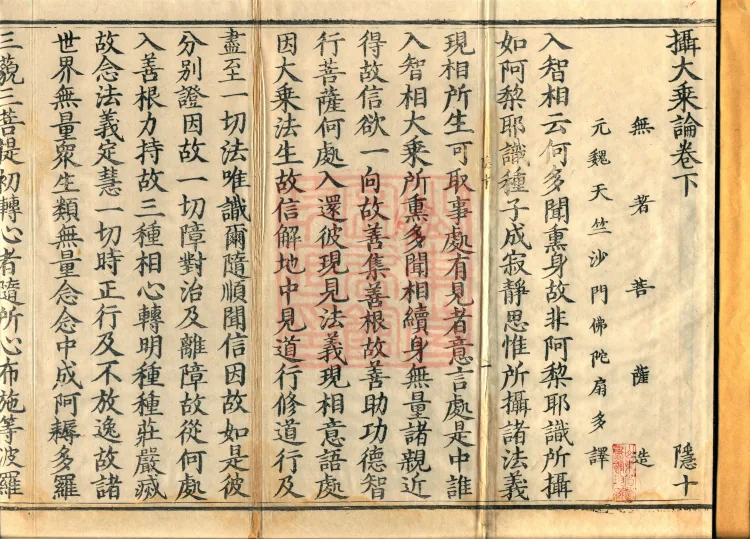 攝大乘論卷下 隱十
無著菩薩造
元魏天竺沙門佛陀扇多譯
入智相云何多聞熏身故非阿犁耶識所攝
如阿犁耶識種子成寂靜思惟所攝諸法義
現相所生可取事處有見者意言處是中誰
入智相大乘所熏多聞相續身無量諸親近
得故信欲一向故善集善根故善助功德智
行菩薩何處入還彼現見法義現相意語處
因大乘法生故信解地中見道行修道行及
盡至一切法唯識爾隨順聞信因故如是彼
分別證因故一切障對治及離障故從何處
入善根力持故三種相心轉明種種莊嚴滅
故念法義定慧一切時正行及不放逸故諸
世界無量衆生類無量念念中成阿耨多羅
三藐三菩提初轉心者隨所心布施等波羅